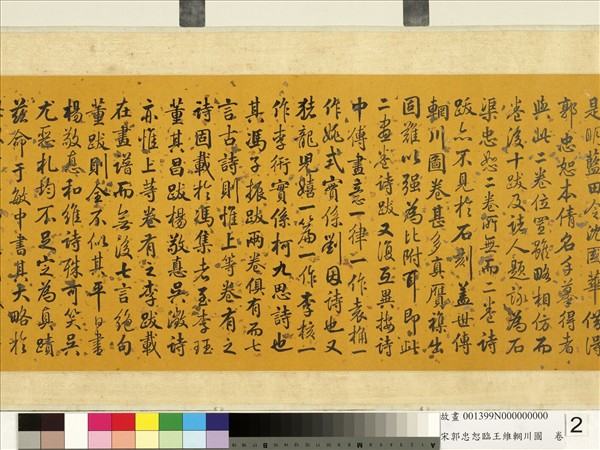 是明藍田令沈國華借得
郭忠恕本倩名手摹得者
與此二卷位置雖略相仿而
卷後十跋及諸人題詠為石
渠忠恕二卷所無而二卷詩
跋亦不見於石刻蓋世傳
輞川圖卷甚多真贋襍出
固難以强為比附耳即此
二畫卷詩跋又復互異按詩
中傳畫意一律一作袁桷一
作姚式實係劉因詩也又
狂龍兒嬉一篇一作李核一
作李衎實係柯九思詩也
其馮子振跋兩卷俱有而七
言古詩則惟上等卷有之
詩固載於馮集者至李珏
董其昌跋楊敬悳吳澂詩
亦惟上等卷有之李跋載
在畫譜而無後七言絕句
董跋則全不似其平日書
楊敬悳和維詩殊可笑吳
尤惡札均不足定為真蹟
茲命于敏中書其大略於
故畫 001399N000000000
宋郭忠恕臨王維輞川圖 卷
2